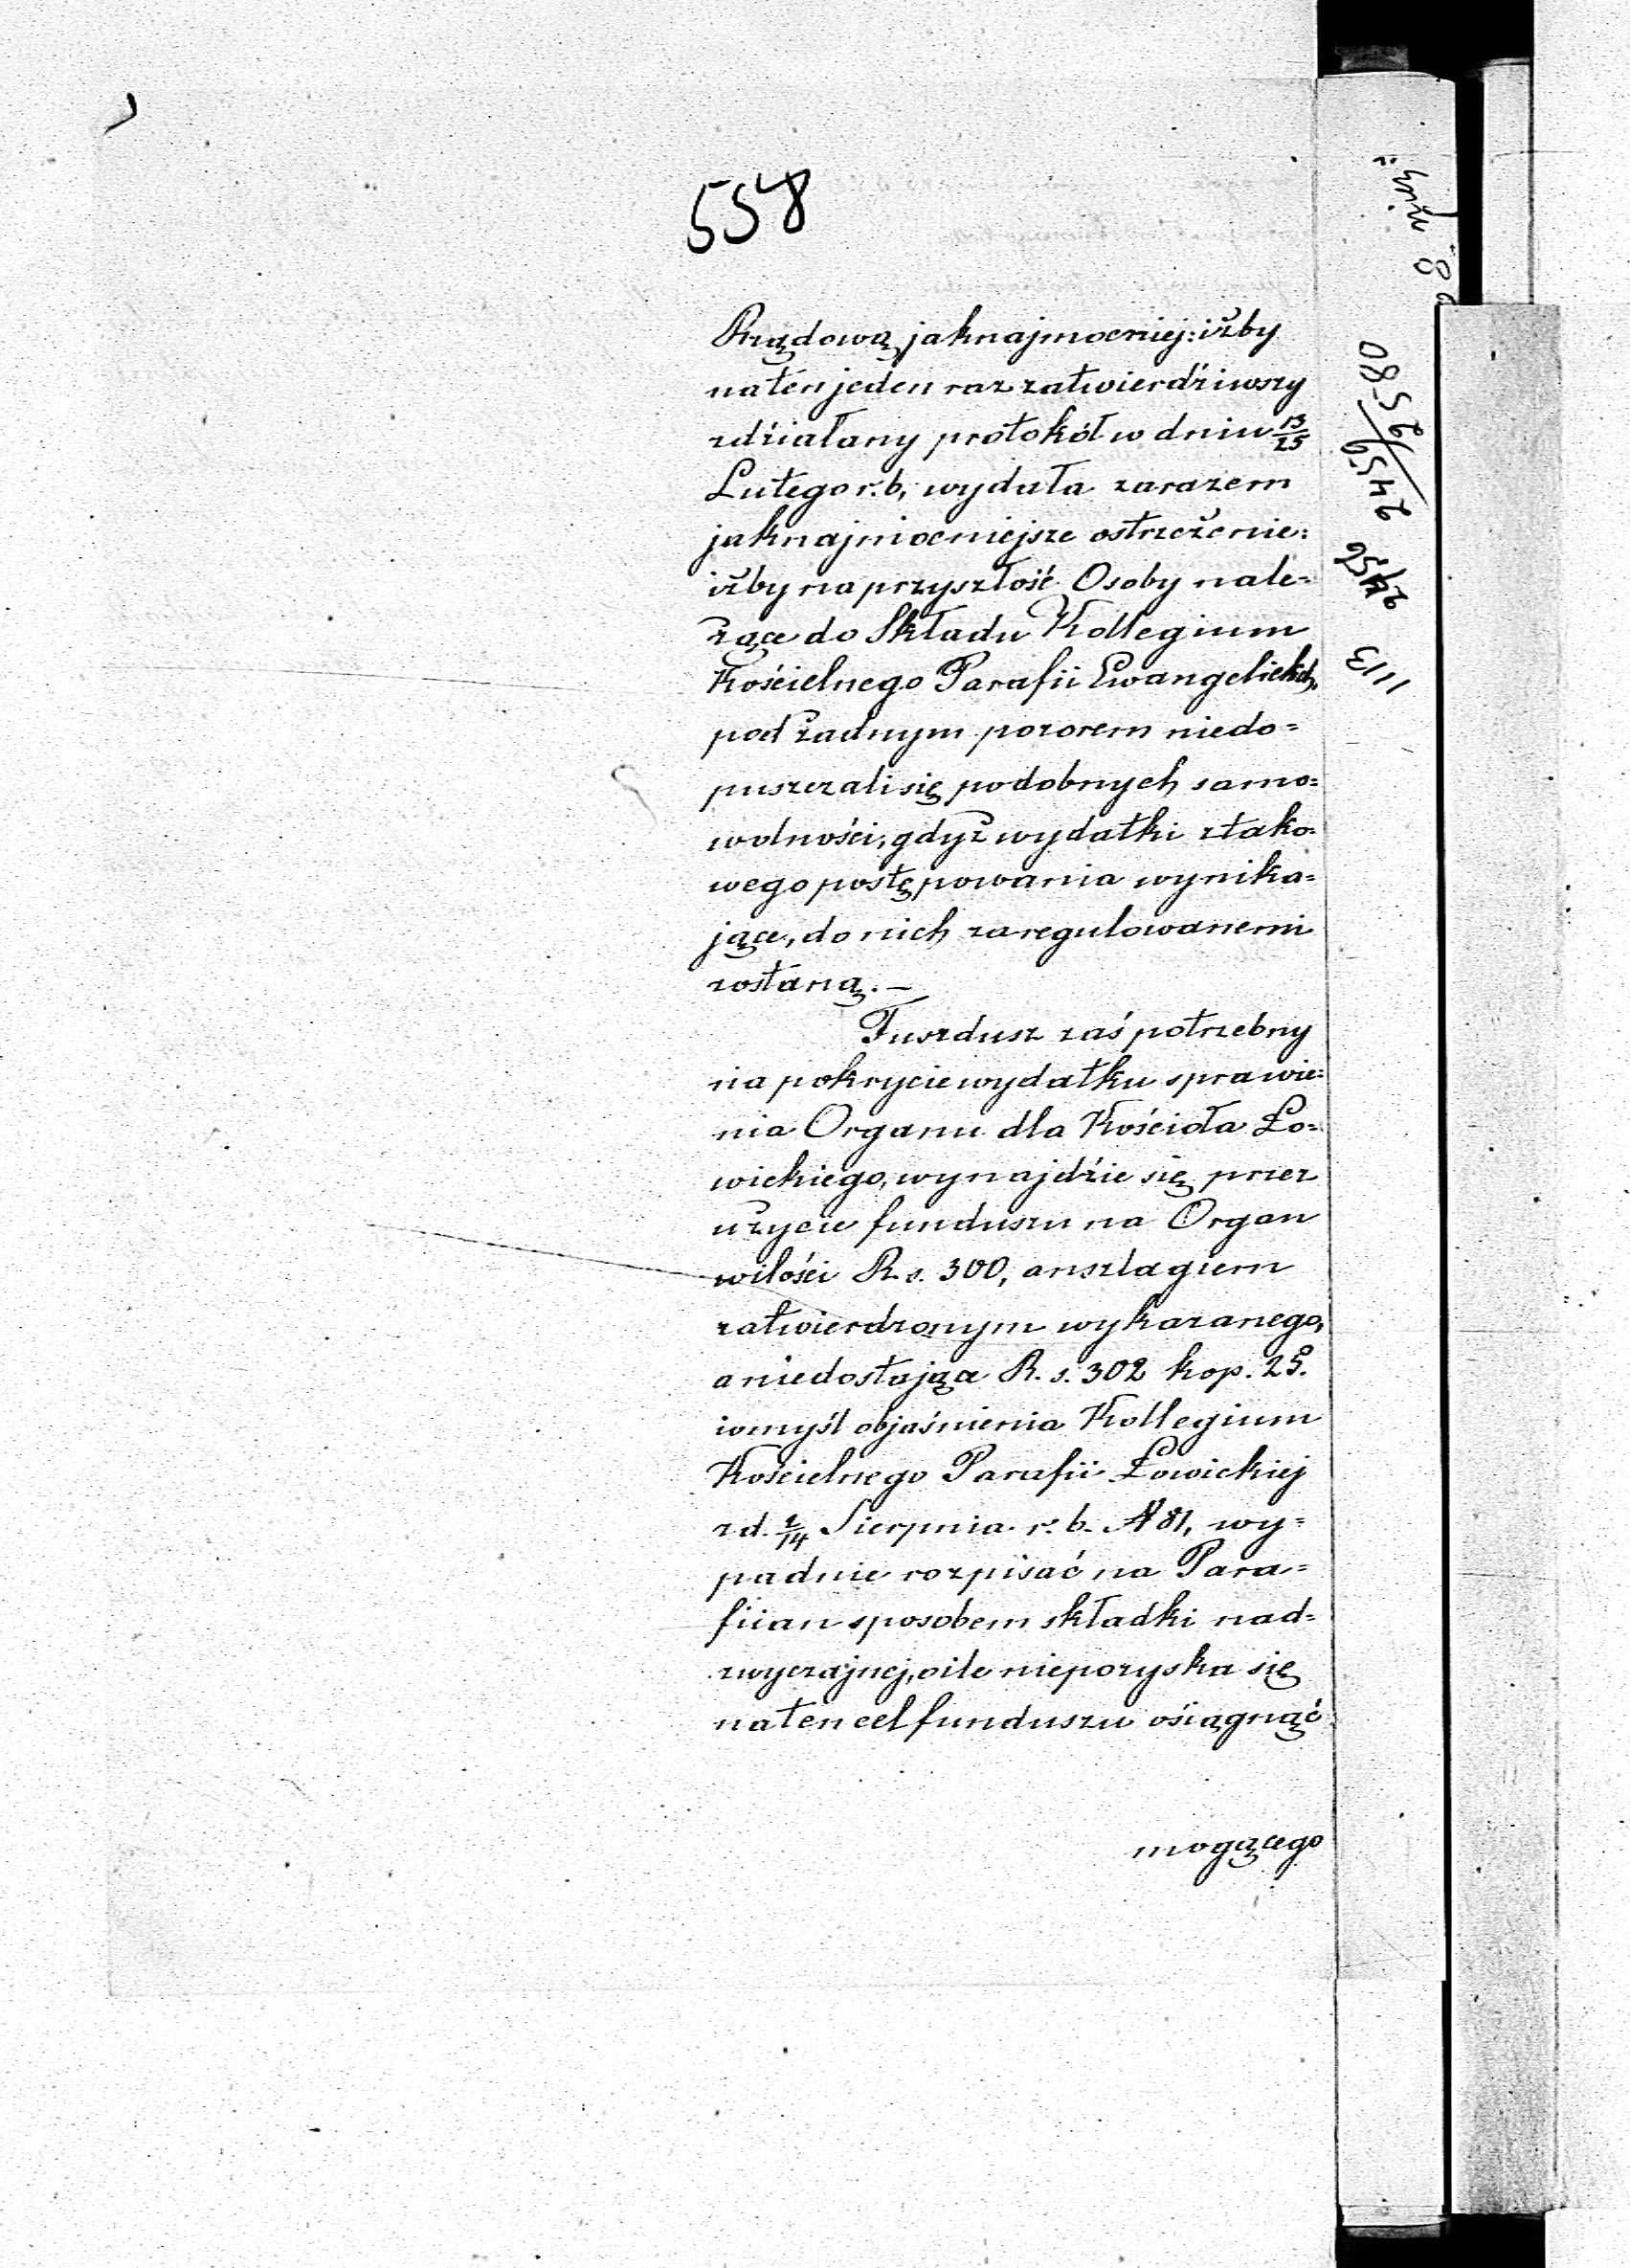 558
Rządową jaknajmocniej: iżby
na ten jeden raz zatwierdźiwszy
zdźiałany protokół w dniu 13/25
Lutego r. b, wydała zarazem
jaknajmocniejsze ostrzeżenie:
iżby na przyszłość Osoby nale=
żące do Składu Kollegium
Kościelnego Parafii Ewangelickch,
pod żadnym pozorem niedo=
puszczali się podobnych samo=
wolności, gdyż wydatki z tako=
wego postępowania wynika=
jące, do nich zaregulowanemi
zostaną. —
Fundusz zaś potrzebny
na pokrycie wydatku sprawie=
nia Organu dla Kościoła Ło=
wickiego, wynajdźie się przez
użycie funduszu na Organ
wilości R. s. 300, anszlagiem
zatwierdzonym wykazanego,
a niedostające R. s. 302 kop. 25.
wmyśl objaśnienia Kollegium
Kościelnego Parafii Łowickiej
z d. 2/14 Sierpnia r. b. N 81, wy=
padnie rozpisać na Para=
fiian sposobem składki nad=
zwyczajnej, oile niepozyska się
na ten cel funduszu ośiągnąć
mogącego
2459
1113